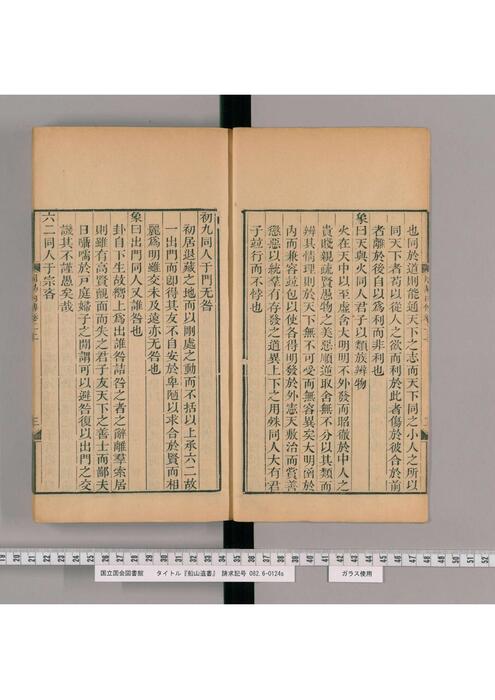 也同於道則能通天下之志而天下同之小人之所以
同天下者苟以從人之欲而利於此者傷於彼合於前
者離於後自以為利而非利也
象曰天與火同人君子以類族辨物
火在天中以至虛含大明明不外發而昭徹於中人之
貴賤親疏賢愚物之美惡順逆取舍無不分以其類而
辨其情理則於天下無不可受而無容異矣大明函於
內而兼容竝包以使各得明發於外憲天敷治而賞善
懲惡以統羣有存發之道異上下之用殊同人大有君
子竝行而不悖也
初九同人于門无咎
初居退藏之地而以剛處之動而不括以上承六二故
一出門而卽得其友不自安於卑陋以求合於賢而相
麗為明雖交未及遠亦无咎也
象曰出門同人又誰咎也
卦自下生故嚮上為出誰咎詰咎之者之辭離羣索居
則雖有高賢覿面而失之君子友天下之善士而鄙夫
日囁嚅於戸庭婦子之閒謂可以避咎復以出門之交
譏其不謹愚矣哉
六二同人于宗吝
三
国立国会図書館 タイトル『船山遺書』 請求記号 082.6-0124s
ガラス使用